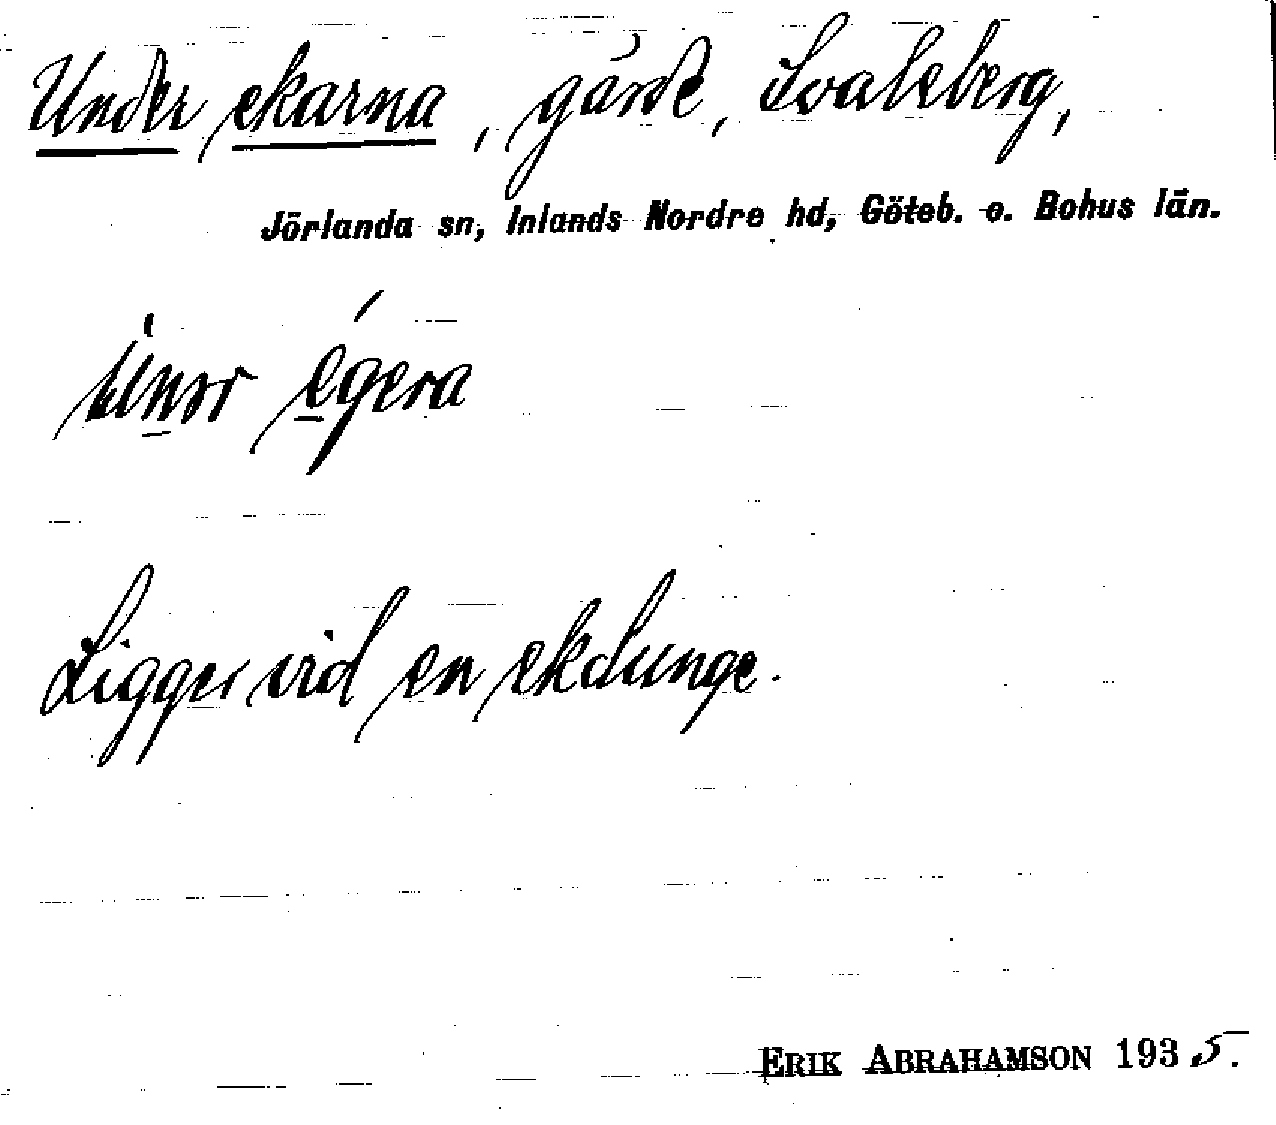 Under ekarna, gärde, Svaleberg,
Jörlanda sn, Inlands Nordre hd, Göteb. o. Bohus län.
Ligger vid en ekdunge.
ERIK ABRAHAMSON 1935.